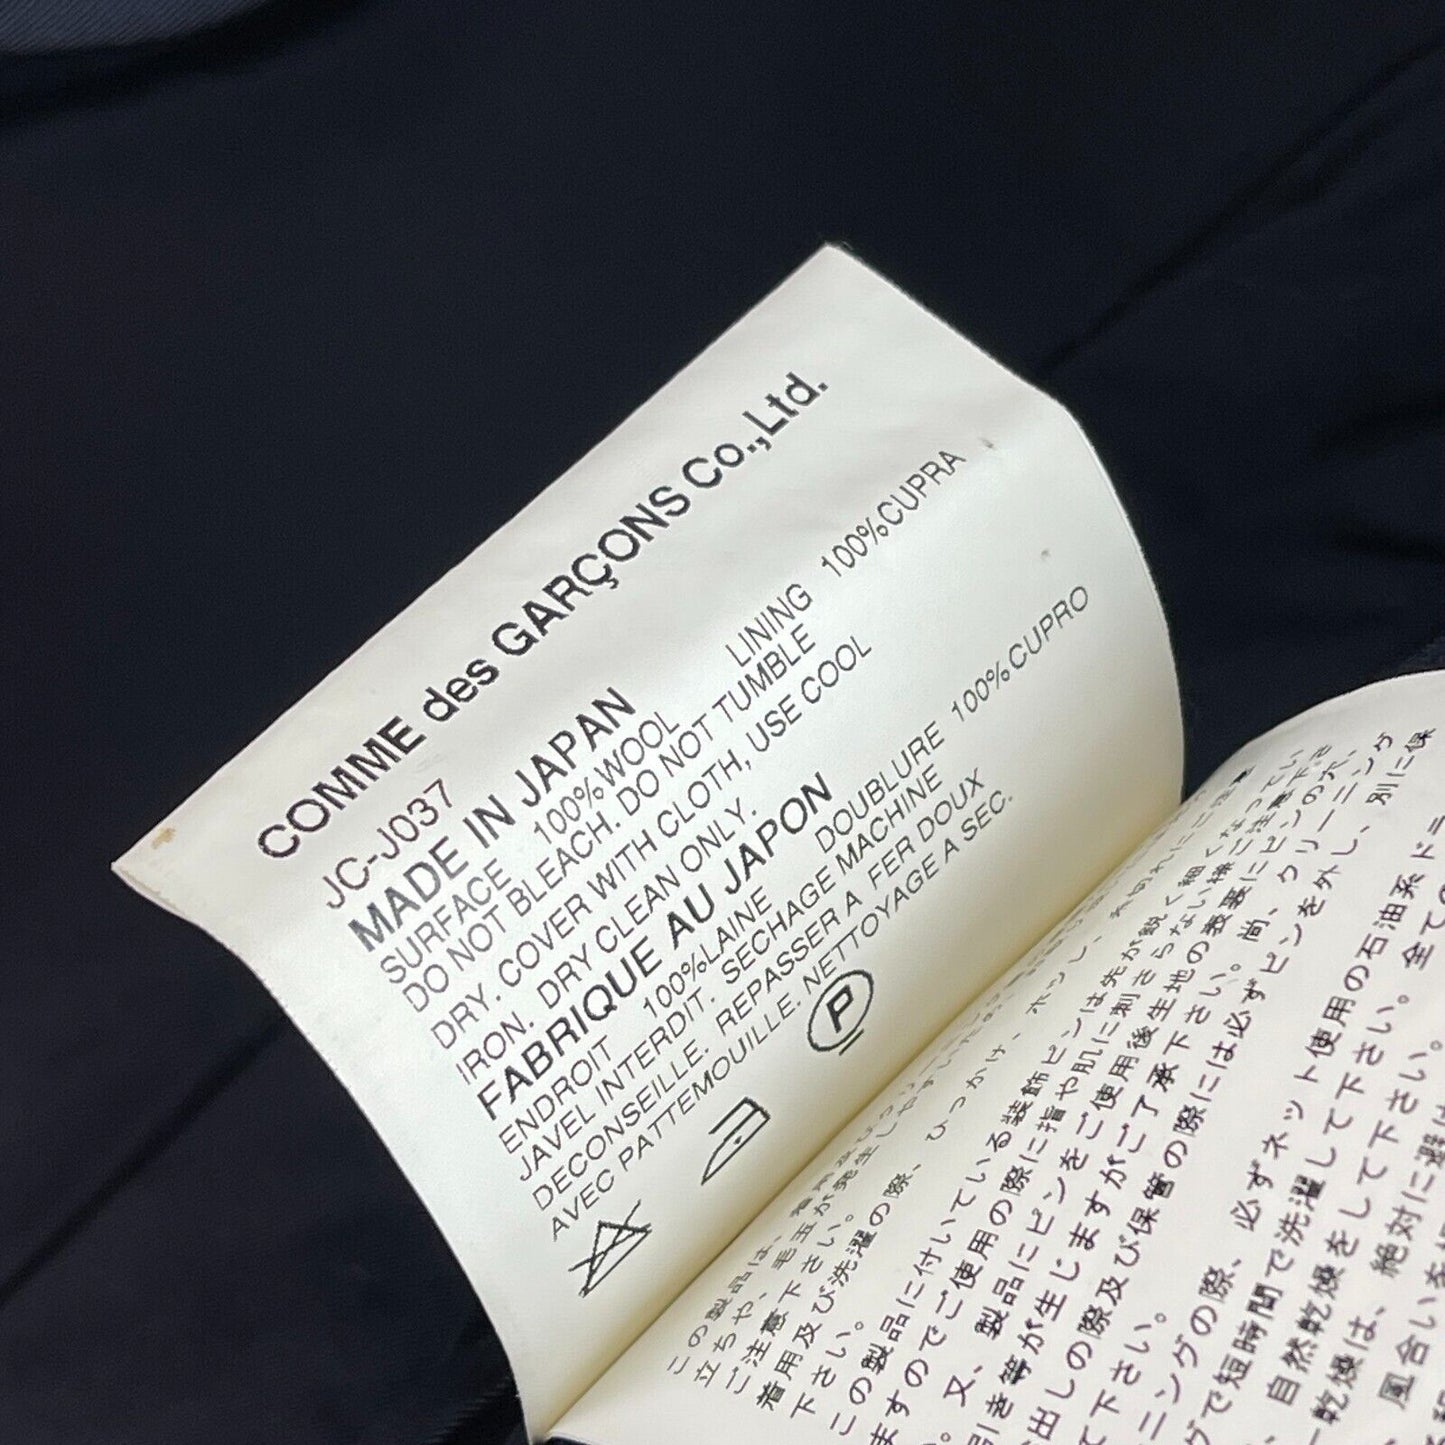 COMME des GARÇONS Co.,Ltd.
JC-J037
MADE IN JAPAN
SURFACE 100%WOOL LINING 100%CUPRA
DO NOT BLEACH. DO NOT TUMBLE
DRY. COVER WITH CLOTH, USE COOL
IRON. DRY CLEAN ONLY.
FABRIQUE AU JAPON
ENDROIT 100%LAINE DOUBLURE 100%CUPRO
JAVEL INTERDIT. SECHAGE MACHINE
DECONSEILLE. REPASSER A FER DOUX
AVEC PATTEMOUILLE. NETTOYAGE A SEC.
P
この製品は、
立ちや、毛玉が発生しやすい
ご注意下さい。
着用及び洗濯の際、ひっかけ、ホツレ、
下さい。
この製品に付いている装飾ピンは先が鋭く細くなってい
ますのでご使用の際に指や肌に刺さらない様ご注意下さ
。又、製品にピンをご使用後生地の表裏にピンの穴、
引き等が生じますがご了承下さい。尚、クリーニング
出しの際及び保管の際には必ずピンを外し、別に保
て下さい。
ニングの際、必ずネット使用の石油系ドラ
グで短時間で洗濯して下さい。全ての
、自然乾燥をして下さい。
乾燥は、絶対に避け
風合いを